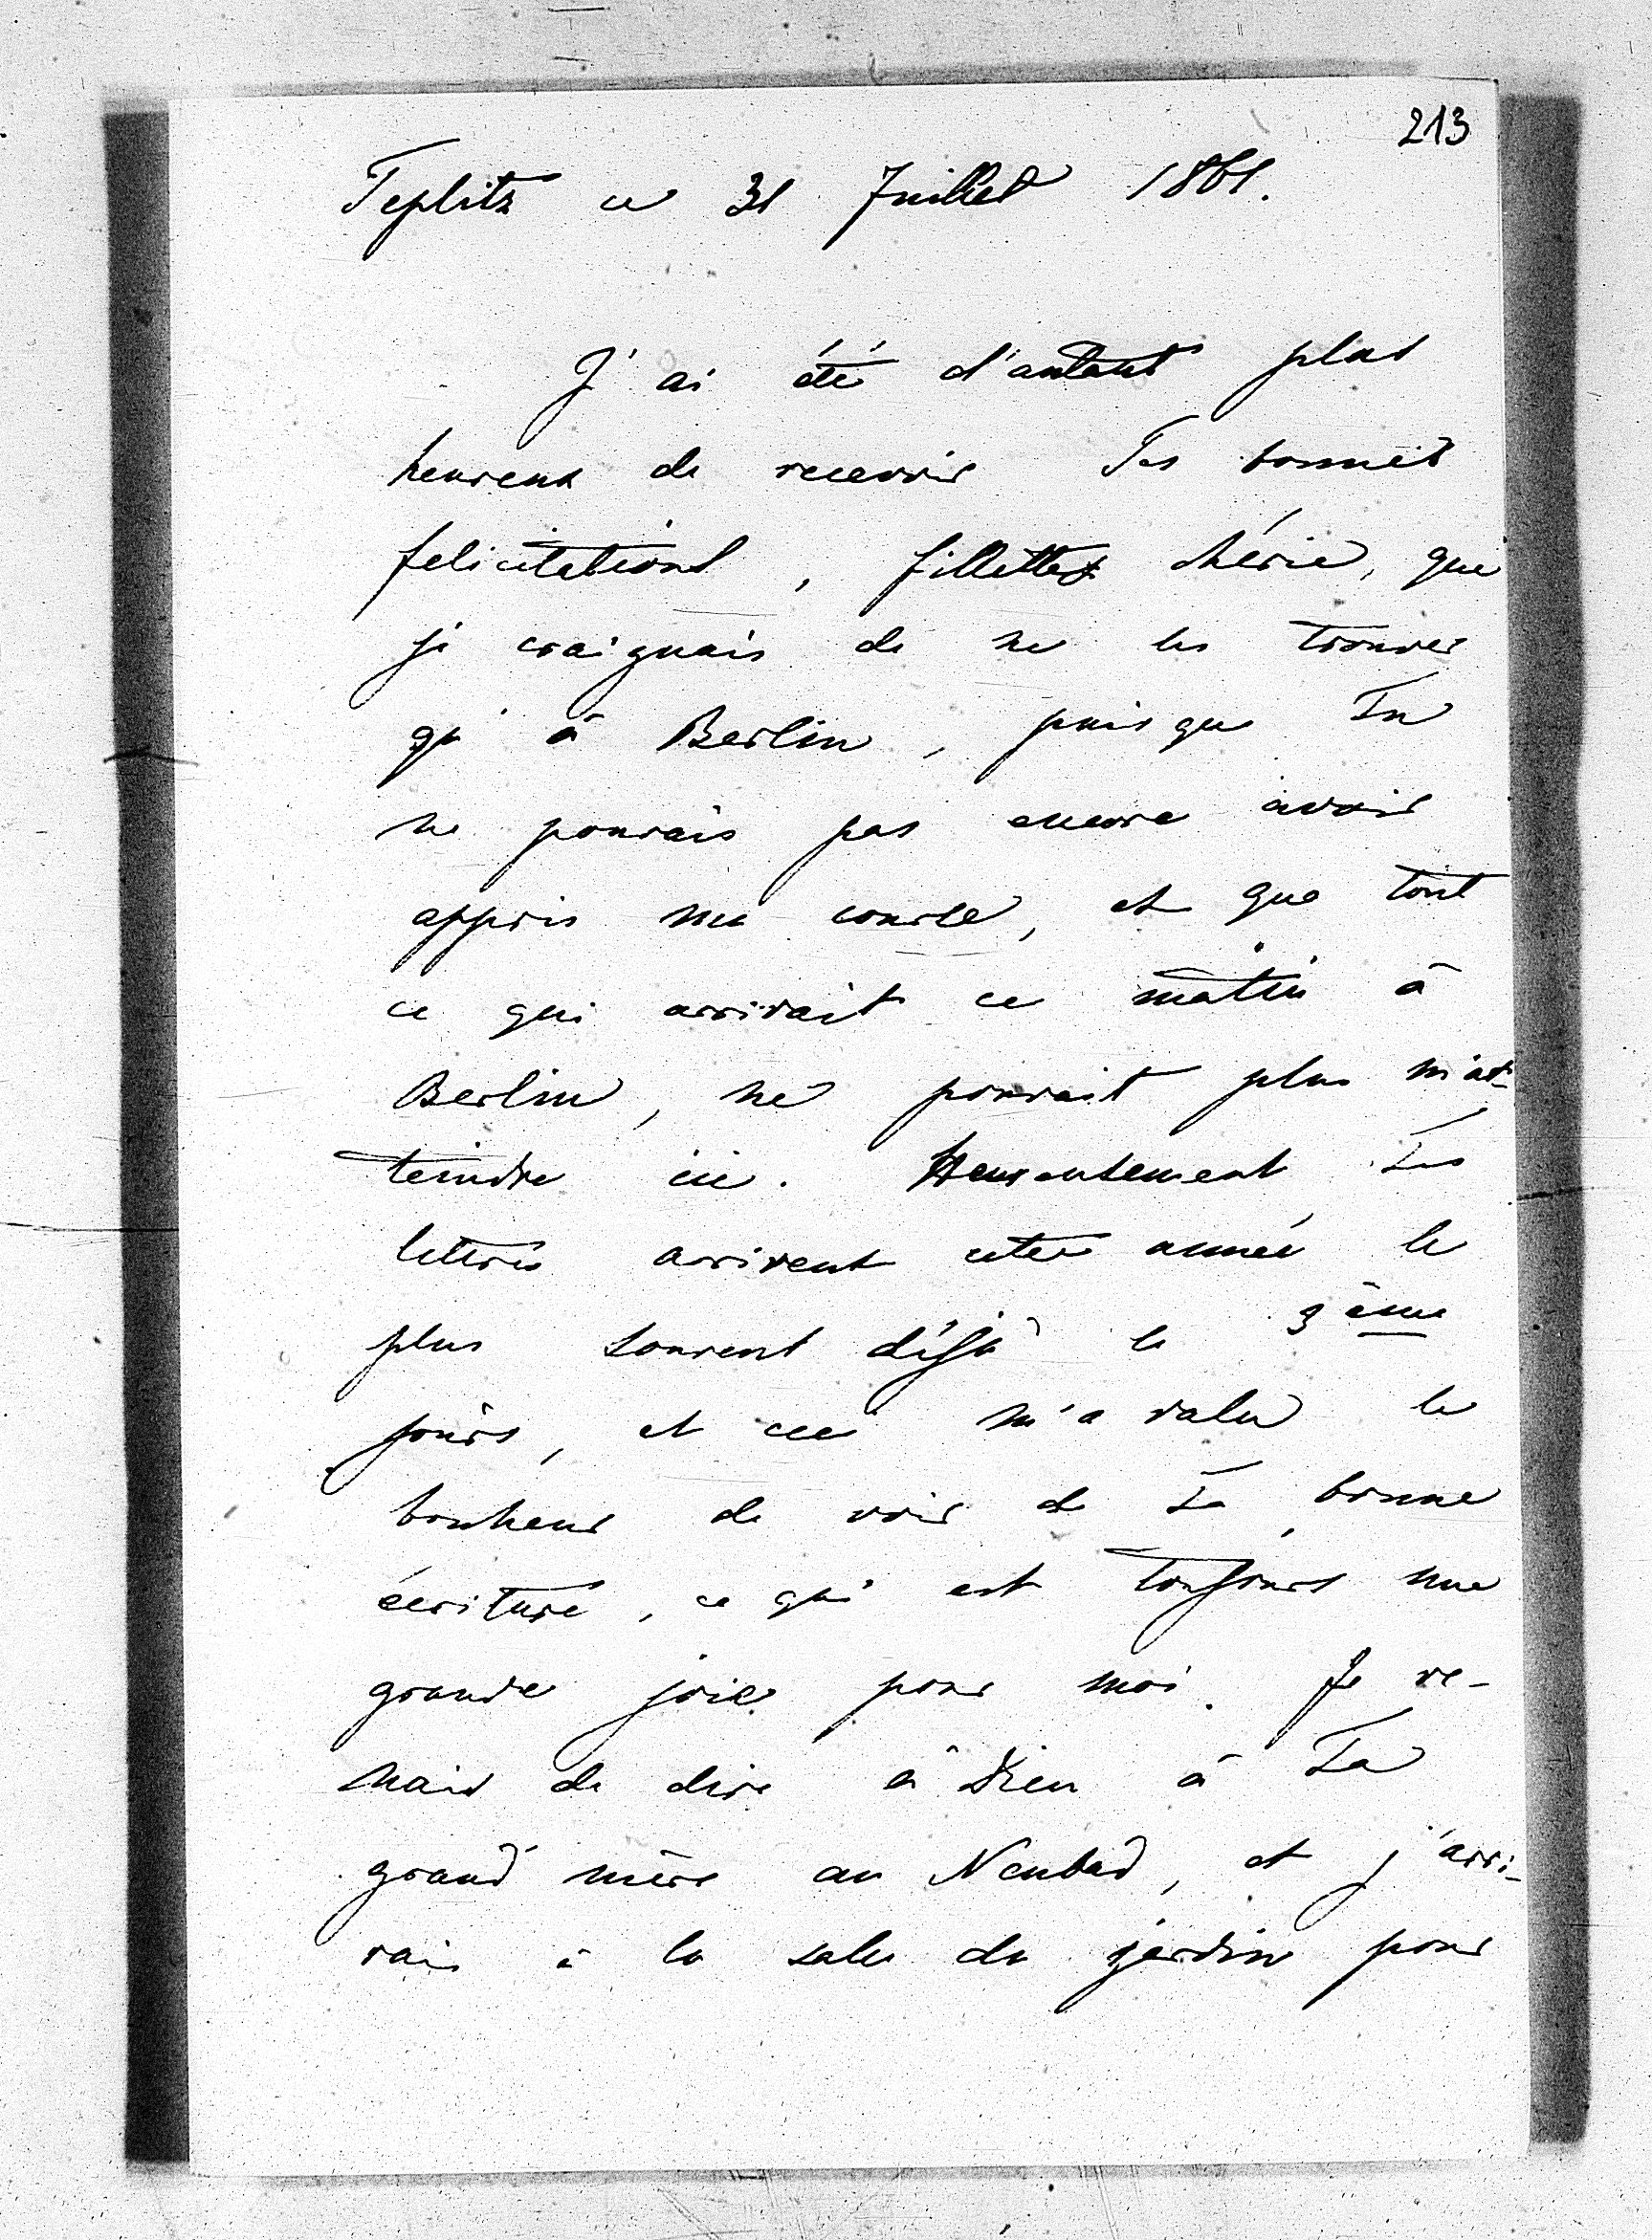 213
Teplitz ce 31 Juillet 1861.
J'ai été d'autant plus
heureux de recevoir Tes bonnes
felicitations, fillette chérie, que
je craignais de ne les trouver
qu'à Berlin, puisque Tu
ne pouvais pas encore avoir
appris ma course, et que tout
ce qui arrivait ce matin à
Berlin, ne pouvait plus m'at-
teindre ici. Heureusement Tes
lettres arrivent cette année le
plus souvent déjà le 3ème
jours, et ceci m'a valu le
bonheur de voir de Ta bonne
écriture, ce qui est toujours une
grande joie pour moi. Je ve-
nais de dire à Dieu à Ta
grand'mère au Neubad, et j'arri-
vais à la salle du jardin pour